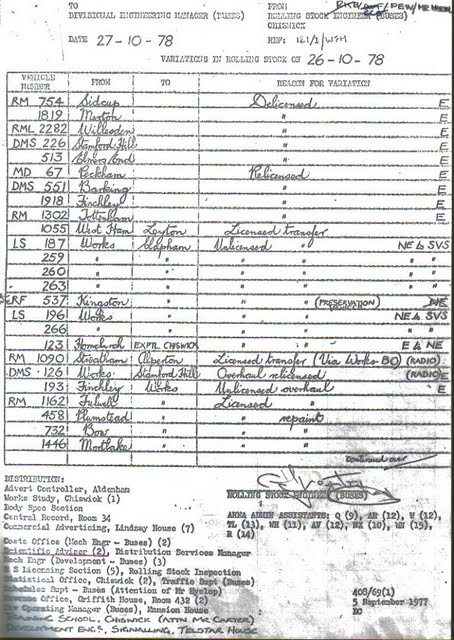 TO
FROM
DIVISIONAL ENGINEERING MANAGER (BUSES)
ROLLING STOCK ENGINEER (BUSES)
CHISWICK
DATE 27-10-78
REF: 121/1/WFH
VARIATIONS IN ROLLING STOCK ON 26-10-78
VEHICLE NUMBER FROM TO REASON FOR VARIATION
RM 754 Sidcup Delicensed E
1819 Merton " E
RML 2282 Willesden " E
DMS 226 Stamford Hill " E
513 Elmers End " E
MD 67 Peckham Relicensed E
DMS 551 Barking " E
1918 Finchley " E
RM 1302 Tottenham " E
1055 West Ham Leyton Licensed transfer
LS 187 Works Clapham Unlicensed " NE to SVS
259 " " " " " "
260 " " " " " "
263 " " " " " "
RF 537 Kingston " " " (PRESERVATION) NE
LS 196 Works " " " NE to SVS
266 " " " " " "
123 Hornchurch EXPTL CHISWICK " " E to NE
RM 1090 Streatham Alperton Licensed transfer (Via Works BO) (RADIO)
DMS 126 Works Stamford Hill Overhaul relicensed (RADIO) E
193 Finchley Works Unlicensed overhaul E
RM 1162 Fulwell " Licensed "
458 Plumstead " " repaint
732 Bow " " "
1446 Mortlake " " "
continued over
DISTRIBUTION:
Advert Controller, Aldenham
Works Study, Chiswick (1)
Body Spec Section
Central Record, Room 34
Commercial Advertising, Lindsay House (7)
ROLLING STOCK ENGINEER (BUSES)
AREA ADMIN ASSISTANTS: Q (9), AR (12), W (12),
TL (13), WH (11), AV (12), NX (10), WN (15),
R (14)
Costs Office (Mech Engr - Buses) (2)
Scientific Adviser (2), Distribution Services Manager
Mech Engr (Development - Buses) (3)
R S Licensing Section (5), Rolling Stock Inspection
Statistical Office, Chiswick (2), Traffic Supt (Buses)
Schedules Supt - Buses (Attention of Mr Hyslop)
Office, Griffith House, Room 432 (2)
Operating Manager (Buses), Mansion House
TRAINING SCHOOL, CHISWICK (ATTN MR CARTER)
DEVELOPMENT ENG., SIGNALLING, TELSTAR HOUSE
408/69(1)
5 September 1977